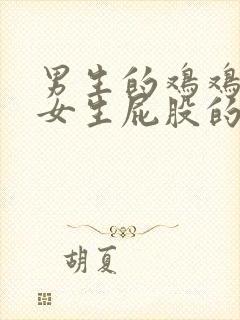 男生的鸡鸡
女生屁股的
胡夏